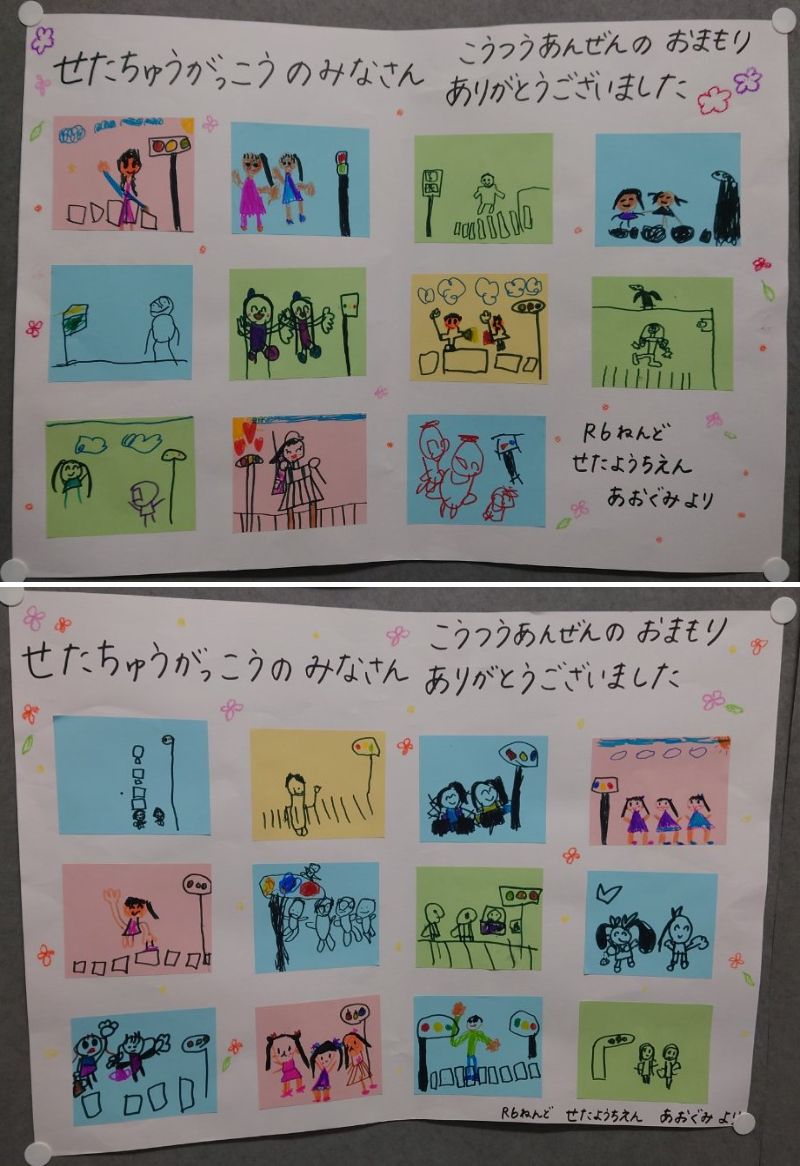 せたちゅうがっこうのみなさん
こうつうあんぜんの おまもり
ありがとうございました
R6ねんど
せたようちえん
あおぐみより
せたちゅうがっこうのみなさん
こうつうあんぜんの おまもり
ありがとうございました
R6ねんど せたようちえん あおぐみより